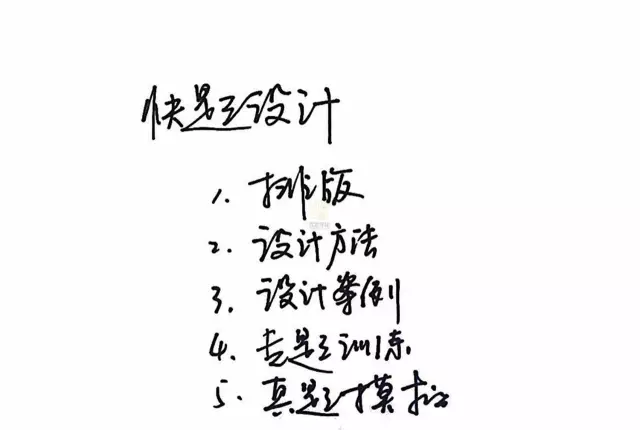 快题设计
1. 排版
2. 设计方法
3. 设计案例
4. 专题训练
5. 真题模拟